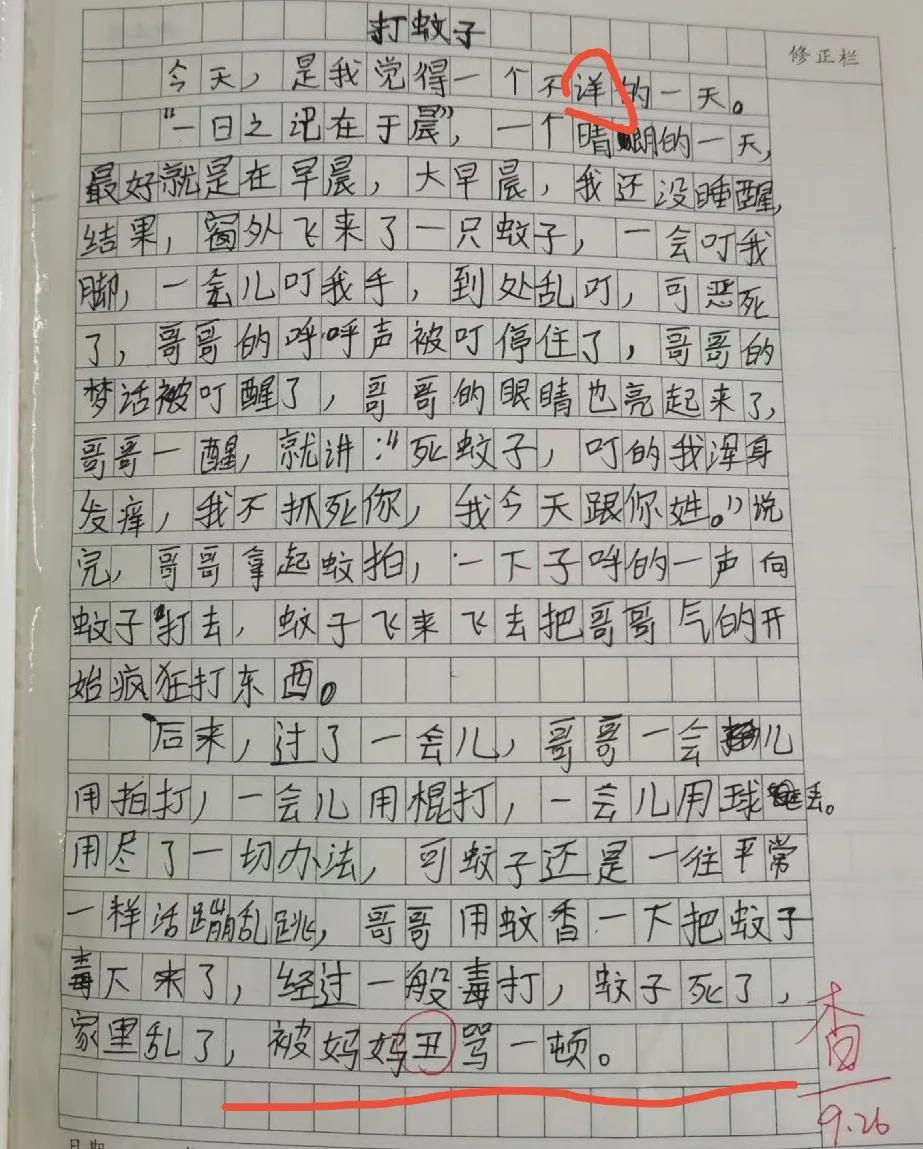 打蚊子
修正栏
今天，是我觉得一个不详的一天。
“一日之记在于晨”，一个晴朗的一天，
最好就是在早晨，大早晨，我还没睡醒，
结果，窗外飞来了一只蚊子，一会叮我
脚，一会儿叮我手，到处乱叮，可恶死
了，哥哥的呼呼声被叮停住了，哥哥的
梦话被叮醒了，哥哥的眼睛也亮起来了，
哥哥一醒，就讲：“死蚊子，叮的我浑身
发痒，我不抓死你，我今天跟你姓。”说
完，哥哥拿起蚊拍，一下子呼的一声向
蚊子打去，蚊子飞来飞去把哥哥气的开
始疯狂打东西。
后来，过了一会儿，哥哥一会儿
用拍打，一会儿用棍打，一会儿用球丢。
用尽了一切办法，可蚊子还是一往平常
一样活蹦乱跳，哥哥用蚊香一下把蚊子
毒下来了，经过一般毒打，蚊子死了，
家里乱了，被妈妈丑骂一顿。
查
9.26
日期